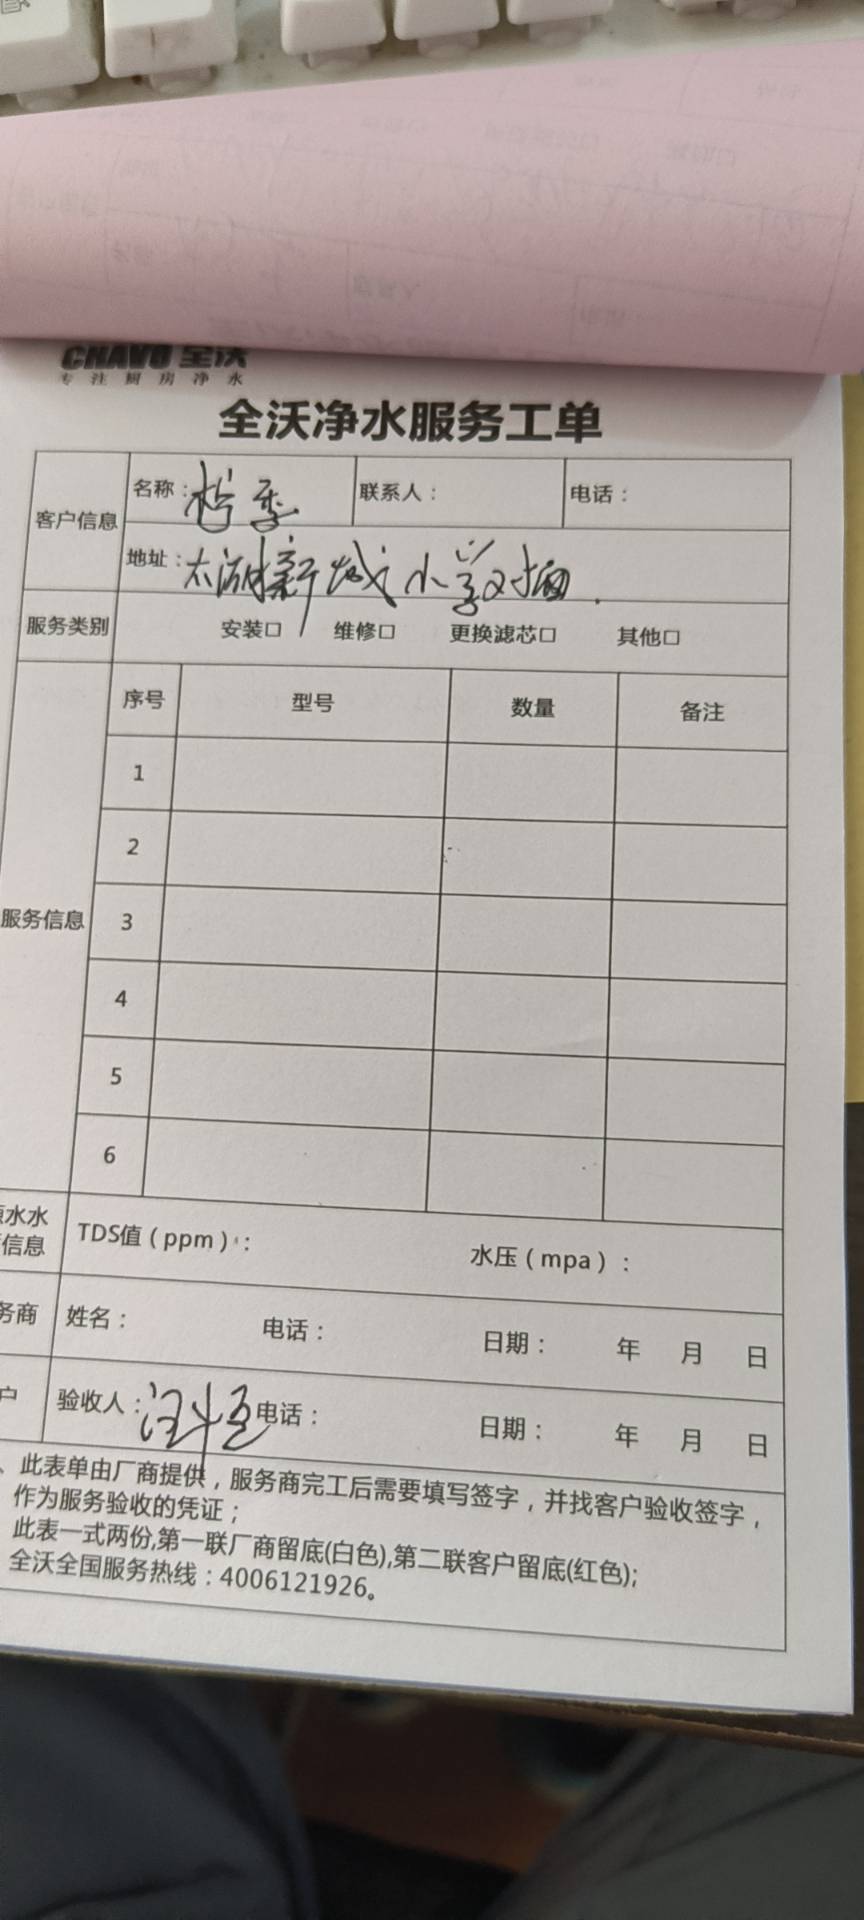 CHAVO 全沃
专注厨房净水
全沃净水服务工单
客户信息 名称： 季 联系人： 电话：
地址：太湖新城小学对面.
服务类别 安装口 维修口 更换滤芯口 其他口
序号 型号 数量 备注
1
2
服务信息 3
4
5
6
水水
信息 TDS值（ppm）： 水压（mpa）：
务商 姓名： 电话： 日期： 年 月 日
户 验收人：汪 电话： 日期： 年 月 日
、此表单由厂商提供，服务商完工后需要填写签字，并找客户验收签字，
作为服务验收的凭证；
此表一式两份,第一联厂商留底(白色),第二联客户留底(红色);
全沃全国服务热线：4006121926。